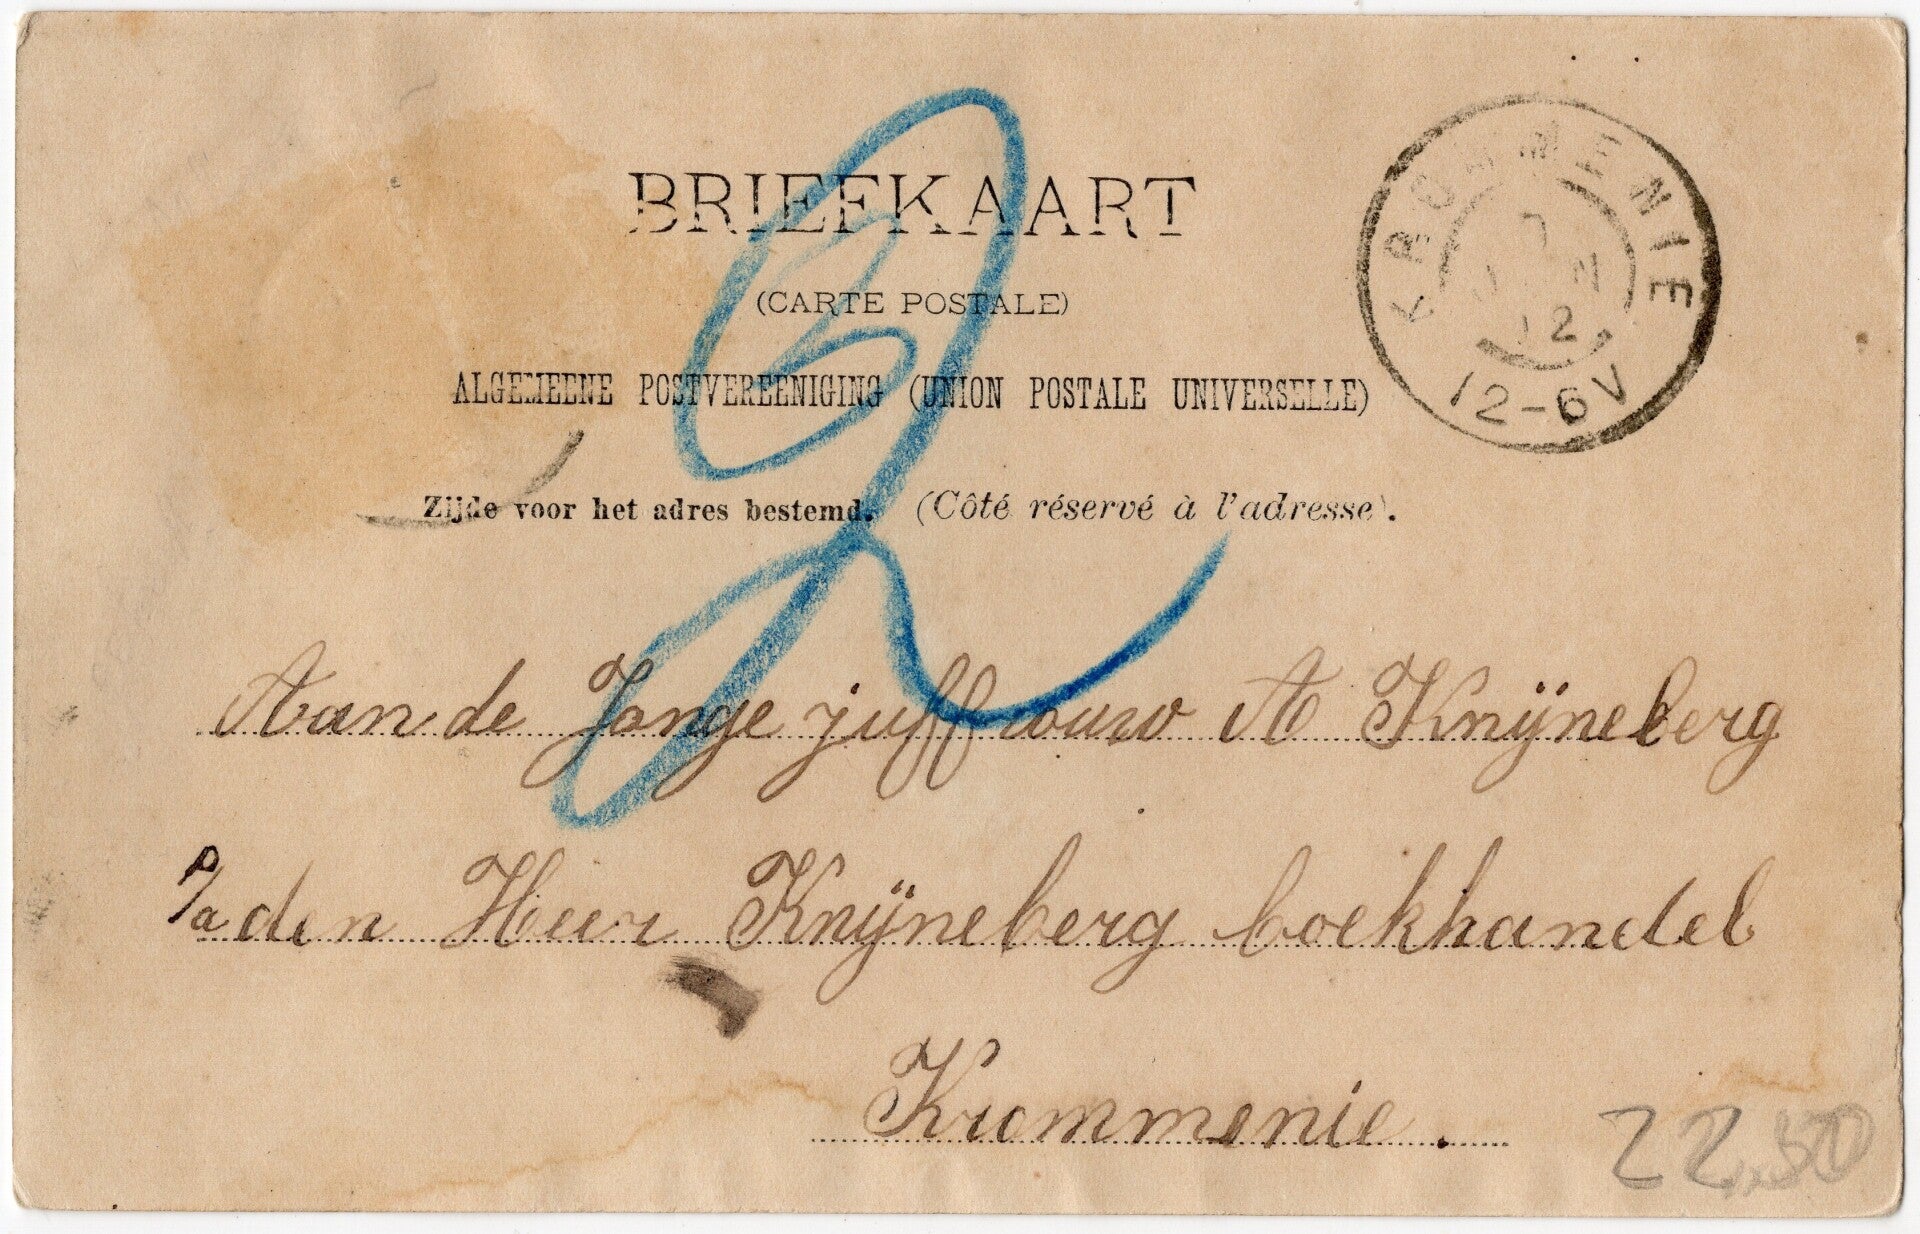 BRIEFKAART
(CARTE POSTALE)
ALGEMEENE POSTVEREENIGING (UNION POSTALE UNIVERSELLE)
Zijde voor het adres bestemd. (Côté réservé à l'adresse).
KROMMENIE
12
12-6V
Aan de Jonge juffrouw A Knijneberg
p/a den Heer Knijneberg boekhandel
Krommenie.
22.50